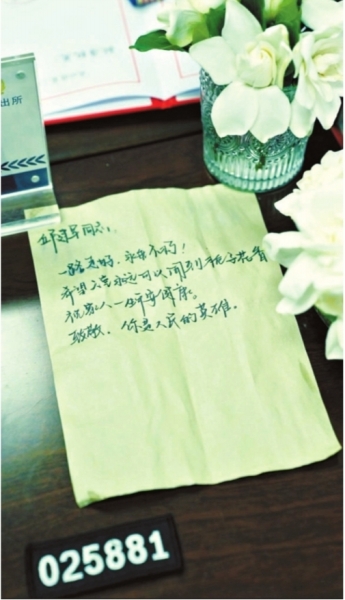 出所
同志:
一路走好,永垂不朽!
希望天堂永远可以闻到栀子花香
祝家人一切平安健康。
致敬,你是人民的英雄.
025881